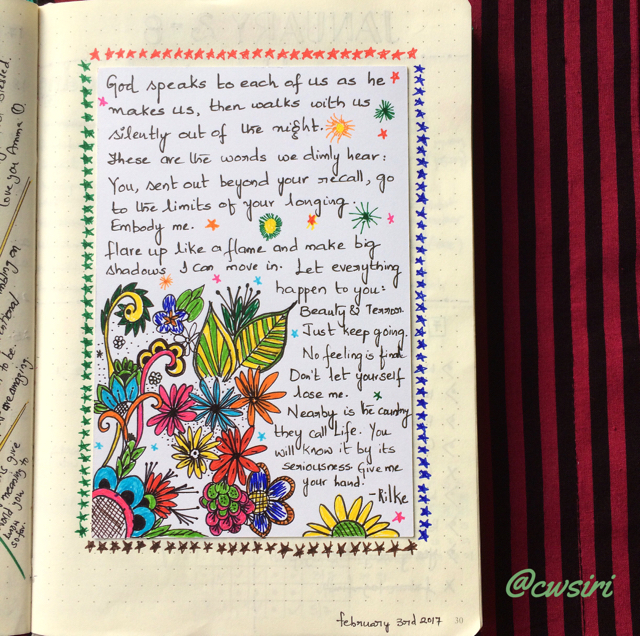 God speaks to each of us as he
makes us, then walks with us
silently out of the night.
These are the words we dimly hear:
You, sent out beyond your recall, go
to the limits of your longing
Embody me.
flare up like a flame and make big
shadows I can move in. Let everything
happen to you:
Beauty & Terror
Just keep going.
No feeling is final
Don't let yourself
lose me.
Nearby is the country
they call Life. You
will know it by its
seriousness Give me
your hand!
-Rilke
february 3rd 2017
30
@cwsiri
blessed.
love you Amma
making on
to be
are amazing
give
meaning to
know you
so far